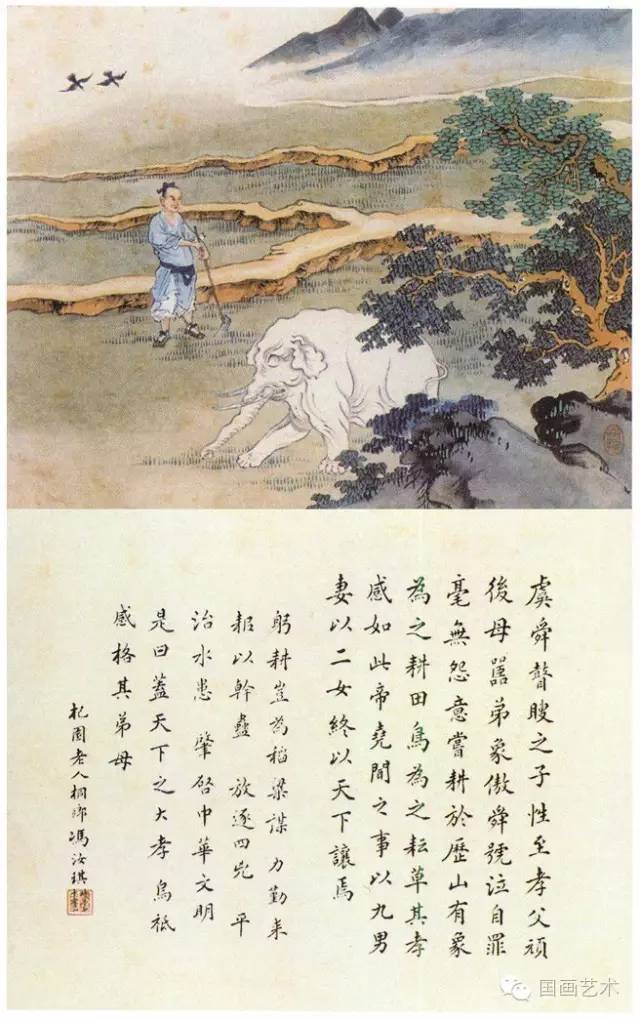 虞舜瞽瞍之子性至孝父頑
後母嚚弟象傲舜號泣自罪
毫無怨意嘗耕於歷山有象
為之耕田鳥為之耘草其孝
感如此帝堯聞之事以九男
妻以二女終以天下讓焉
躬耕豈為稻粱謀 力勤耒
耜以幹蠱 放逐四兇 平
治水患 肇啓中華文明
是曰蓋天下之大孝 烏祗
感格其弟母
杞園老人桐鄉馮汝琪
国画艺术